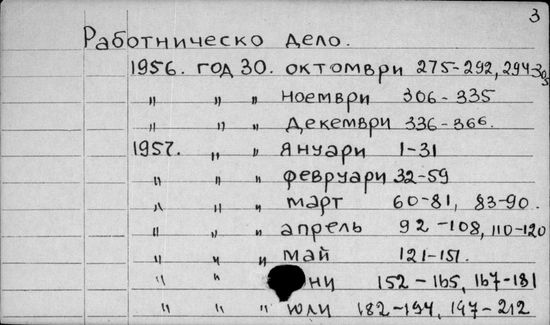 3
Работническо дело.
1956. год 30. октомври 275-292, 294-305
" " " ноември 306-335
" " " декември 336-366.
1957. " " януари 1-31
" " " февруари 32-59
" " " март 60-81, 83-90.
" " " апрель 92-108, 110-120
" " " май 121-151.
" " ни 152-165, 167-181
" " " юли 182-194, 197-212